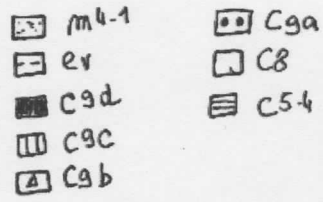 m4-1
er
C9d
C9C
C9b
C9a
C8
C5-4